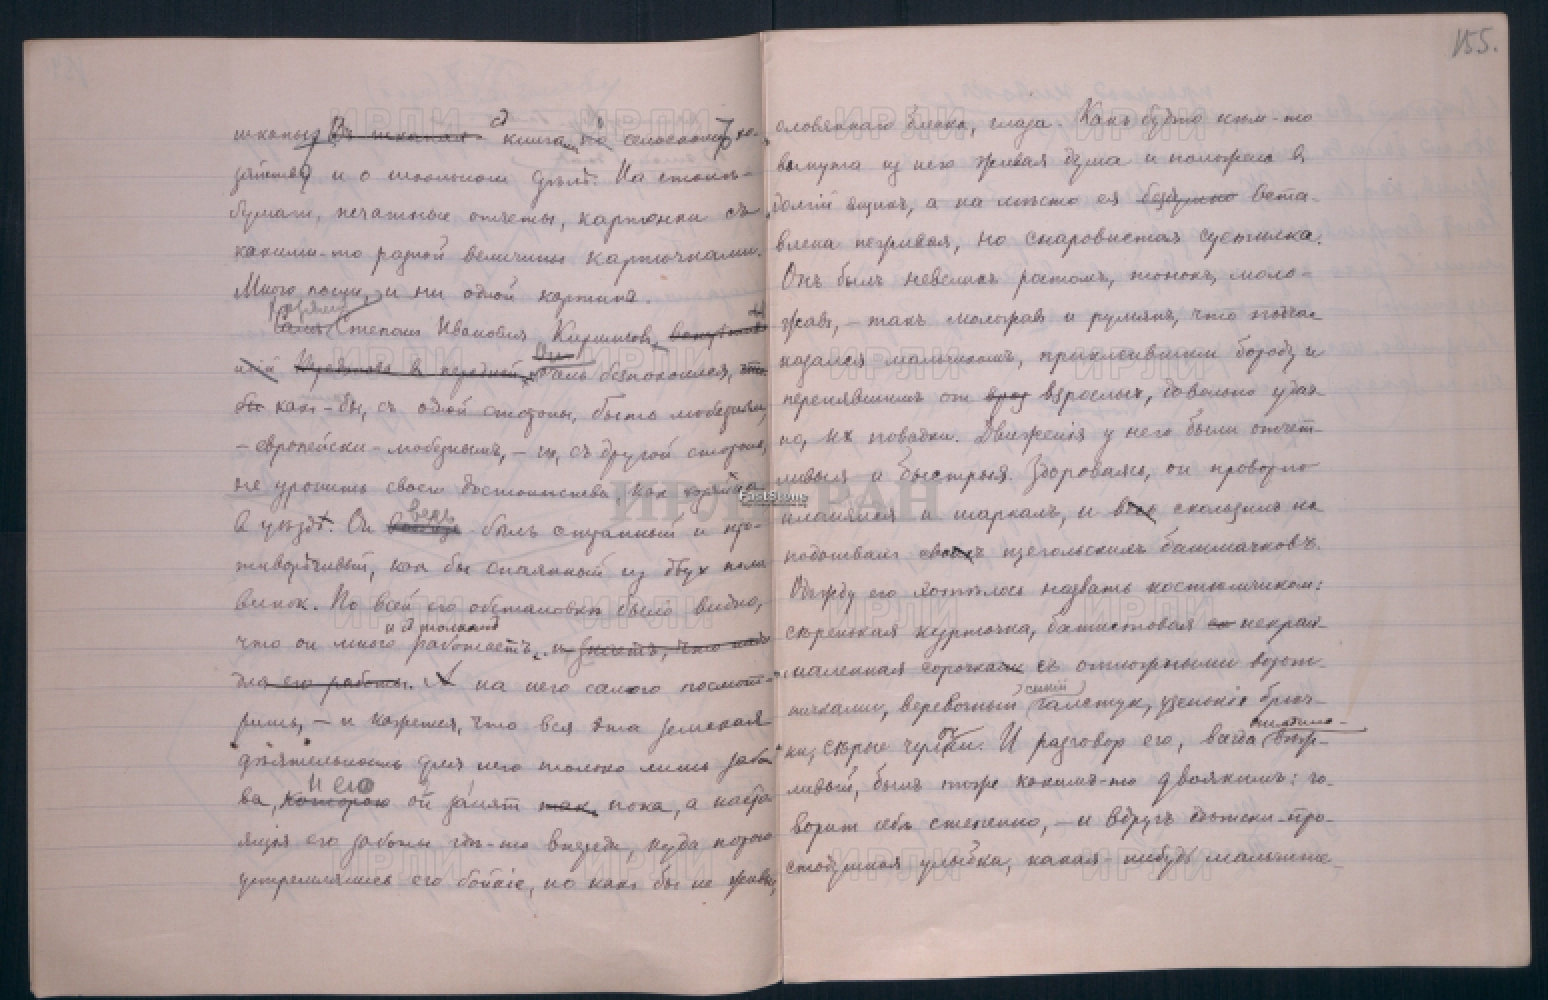 155.
шкапы, ~~Въ шкапах~~ с книгами по сельскому хо-
зяйству и о школьном дѣлѣ. На столѣ-
бумаги, печатные отчеты, картонки съ
какими-то разной величины карточками.
Много посуды, и ни одной картины.
Степан Иванович Кирпичов,
~~в передней~~, Он безпокоился,
как-бы, съ одной стороны, быть любезным,
- европейски-любезнымъ, - и, съ другой стороны,
не уронить своего достоинства, как хозяина
в уѣздѣ. Он весь был странный и про-
тиворѣчивый, как бы спаянный из двух поло
винок. По всей его обстановкѣ было видно,
что он много и с толком работаетъ, ~~и знаетъ, что надо~~
~~для его работы.~~ А на него самого посмот-
ришь, - и кажется, что вся эта земская
дѣятельность для него только лишь заба
ва, И ею он занят пока, а настоя
ящія его заботы гдѣ-то впереди, куда порою
устремлялись его бойкіе, но как бы не живы,
оловяннаго блеска, глаза. Какъ будто кѣм-то
вынута из него живая душа и положена в
долгій ящикъ, а на мѣсто ея вста-
влена неживая, но сноровистая суетилка.
Онъ былъ невелик ростомъ, тонок, моло-
жав, - такъ моложав и румян, что подчас
казался мальчиком, приклеившим бороду и
перенявшим от взрослых, довольно удач-
но, их повадки. Движенія у него были отчет-
ливыя и быстрыя. Здороваясь, он проворно
кланялся и шаркал, и скользил на
подошвахъ щегольских башмачковъ.
Одежду его хотѣлось назвать костюмчиком:
сѣренькая курточка, батистовая некрах-
маленная сорочка съ отложными ворот-
ничками, веревочный синій галстук, узенькіе брюч-
ки, сѣрые чулки. И разговор его, всегда
ливый, был тоже каким-то двояким: го-
ворит себѣ степенно, - и вдругъ дѣтски-про-
стодушная улыбка, какая-нибудь мальчише